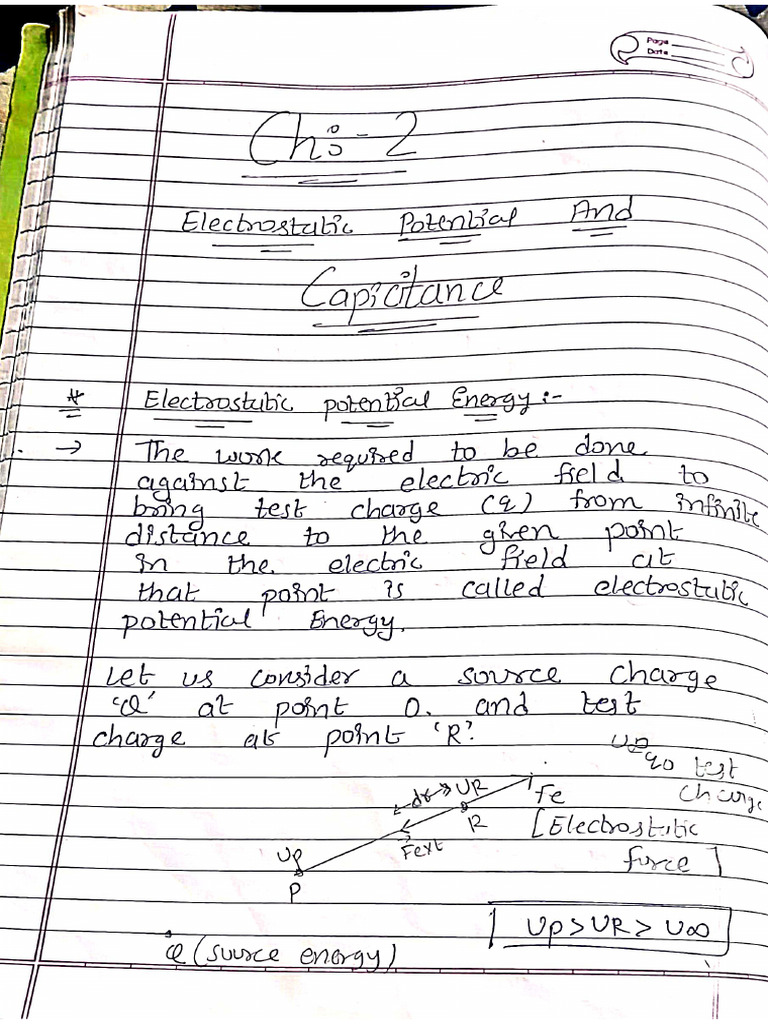 Page
Date
Ch:-2
Electrostatic Potential And
Capicitance
* Electrostatic potential Energy:-
→ The work required to be done
against the electric field to
bring test charge (q) from infinite
distance to the given point
in the electric field at
that point is called electrostatic
potential Energy.
Let us consider a source charge
'Q' at point O. and test
charge at point 'R'.
q0 test
charge
dr UR
Fe
R
[Electrostatic
force]
Fext
Up
P
Up>UR>U∞
Q (source energy)